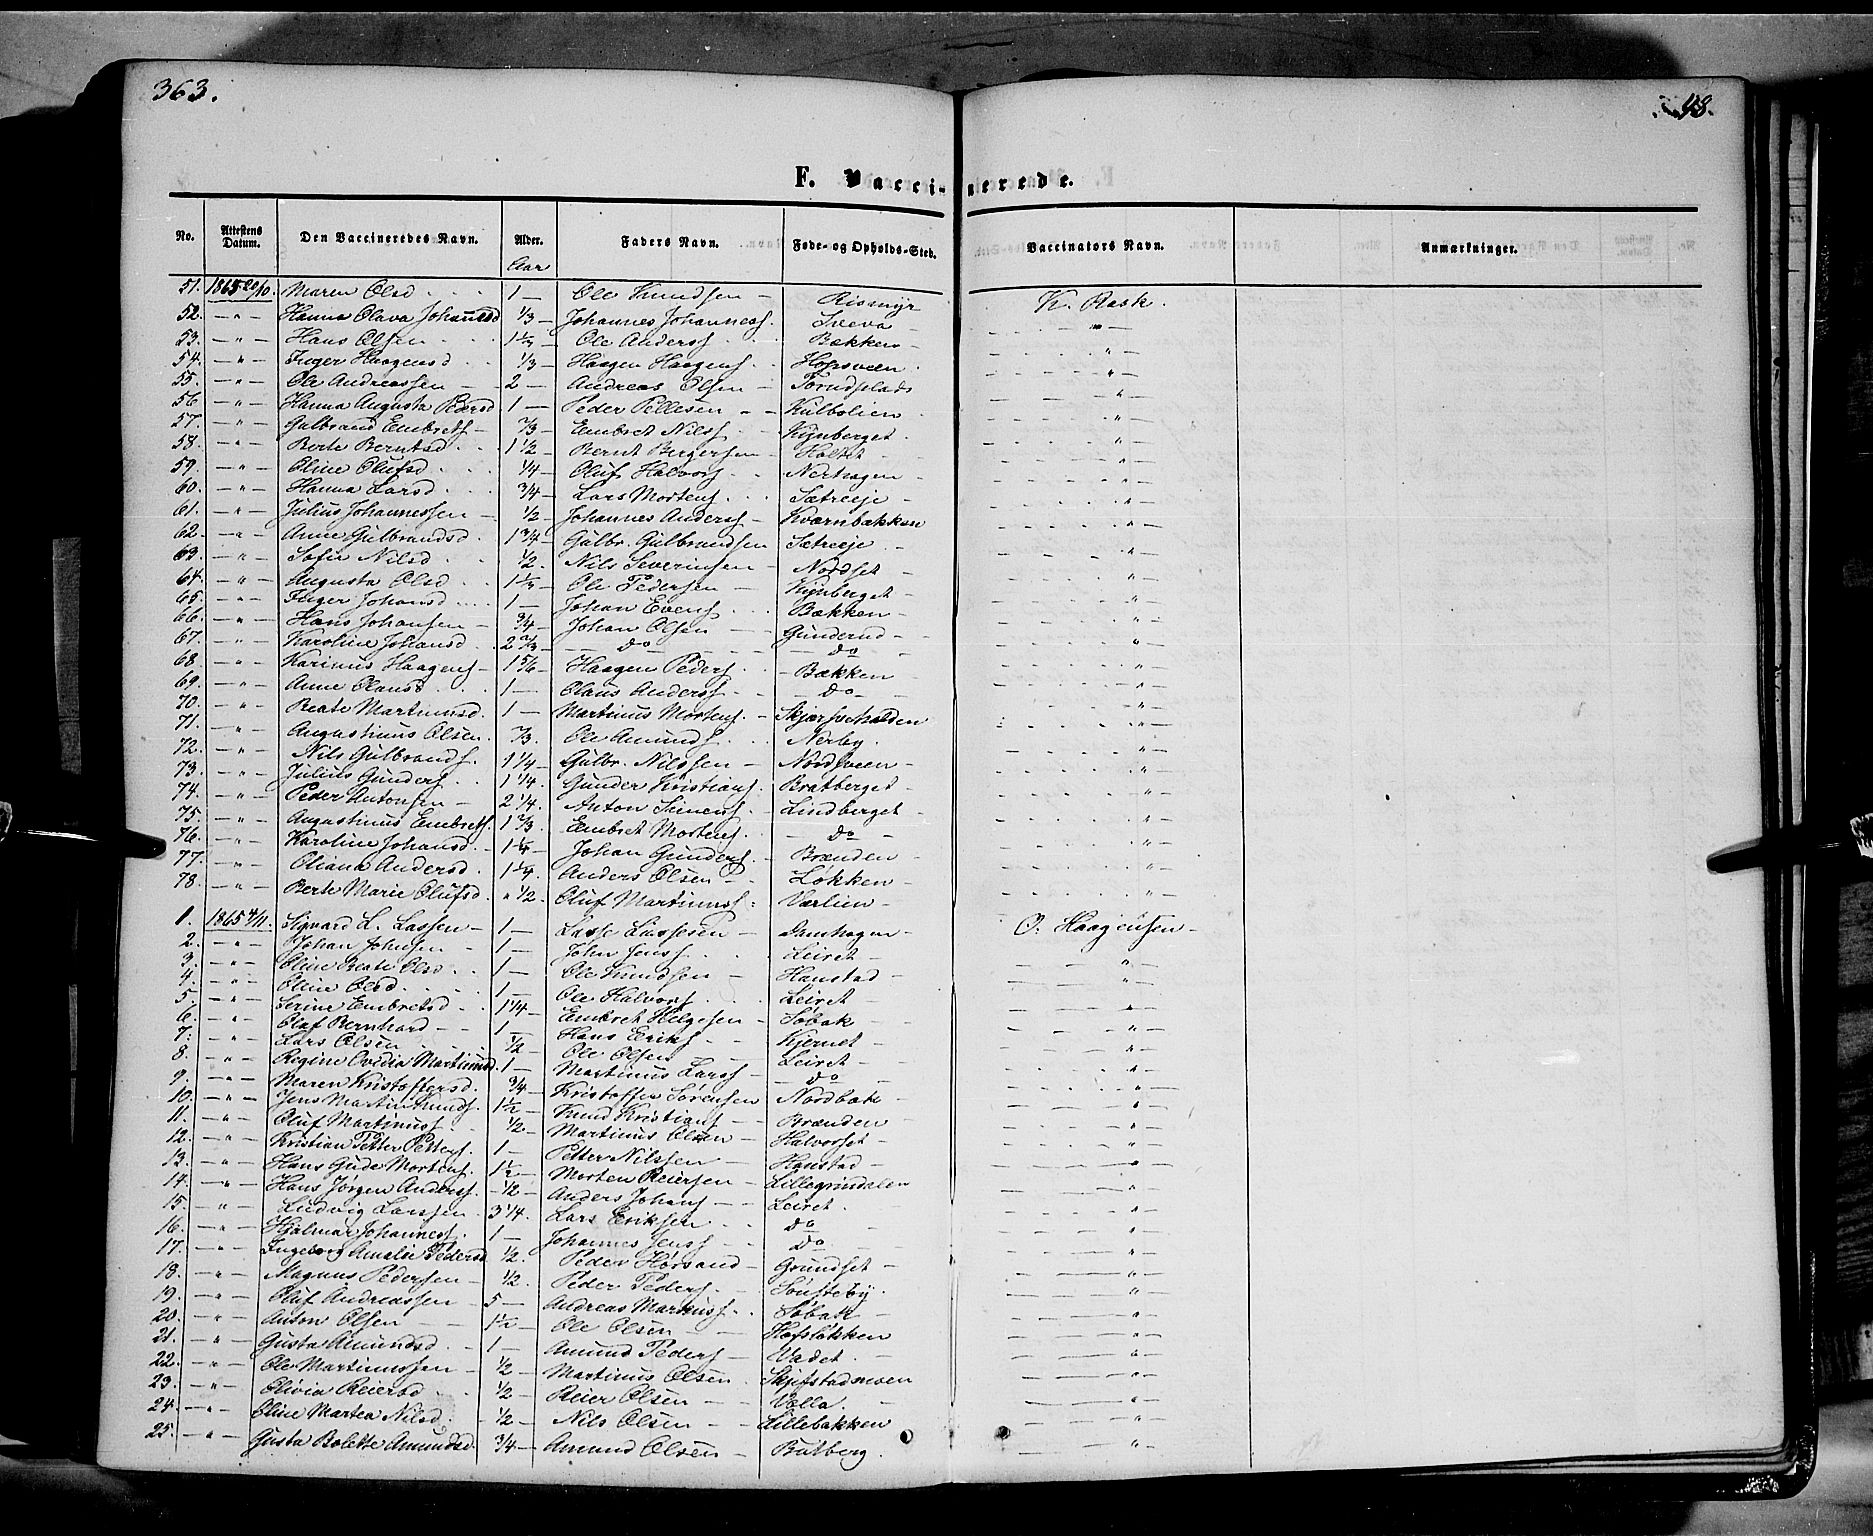 363.
F. Vaccinerede.
No. Attestens Datum. Den Vaccineredes Navn. Alder. Faders Navn. Føde- og Opholds-Sted. Vaccinators Navn. Anmærkninger.
Aar
51. 1865 20/10. Maren Olsd 1 — Ole Knudsen — Rismyr K. Rask.
52. — " — Hanna Olava Johannesd 1/3 — Johannes Johannesf. Sveva — " —
53. — " — Hans Olsen 1 1/2 — Ole Andersf Bækken — " —
54. — " — Inger Haagensd 1/3 — Haagen Haagensf. Hopsveen. "
55. — " — Ole Andreassen — 2 — Andreas Olsen — "
56. — " — Hanna Augusta Pedersd 1 — Peder Pellesen — Kulbolien "
57. — " — Gulbrand Embretf — 2/3 — Embret Nilsf Kynberget. "
58. — " — Berte Berntsd 1 1/2 — Bernt Bergersen — Holtet "
59. — " — Oline Olufsd 1/4 — Oluf Halvorf Nerhagen — "
60. — " — Hanna Larsd 3/4 — Lars Mortensf. Sætreeje — "
61. — " — Julius Johannessen — 1/2 — Johannes Andersf — Kværnbækken "
62. — " — Anne Gulbrandsd 1 3/4 — Gulbr. Gulbrandsen Sætreeje. — "
63. — " — Sofie Nilsd 1/2 — Nils Severinsen — Nordset — "
64. — " — Augusta Olsd 1 1/2 — Ole Pedersen — Kynberget — "
65. — " — Inger Johansd 1 — Johan Evensf Bækken — "
66. — " — Hans Johansen — 3/4 — Johan Olsen — Gunderud — "
67. — " — Karoline Johansd 2 2/3 — do — do "
68. — " — Karinus Haagensf — 1 5/6 — Haagen Pedersf. — Bækken — "
69. — " — Anne Olausd 1 — Olaus Andersf — do — "
70. — " — Beate Martinusd. 1 — Martinus Mortensf. — "
71. — " — Augustinus Olsen. 2/3. Ole Amundsf. Nerby. "
72. — " — Nils Gulbrandsf. 1 1/4 — Gulbr. Nilssen — Nordsveen — "
73. — " — Julius Gundersf. 1 1/4. Gunder Kristiansf. Bratberget — "
74. — " — Peder Antonsen — 2 1/4. Anton Simensf. Lindberget — "
75. — " — Augustinus Embretsf. 1 2/3. Embret Mortensf. — do — "
76. — " — Karoline Johansd. 1 1/4. Johan Gundersf. — Brænden — "
77. — " — Oliana Andersd. 1 1/4. Anders Olsen — Løkken — "
78. — " — Berte Marie Olufsd " 1/2. Oluf Martinusf. Værlien — "
1. 1865 4/11. Sigvard L. Lassen — 1 — Lasse Lassesen — Damhagen — O. Haagensen —
2. — " — Johan Johnsen — 1 — John Jensf. Leiret — "
3. — " — Oline Beate Olsd 1 — Ole Knudsen — Hanstad — "
4. — " — Oline Olsd. 1 — Ole Halvorsf. Leiret — "
5. — " — Serine Embretsd 1 1/4 — Embret Helgesen — Søbak — "
6. — " — Olaf Bernhard — 1 — Hans Eriksf. Kjernet — "
7. — " — Lars Olsen 1/2 — Ole Olsen Leiret — "
8. — " — Regine Ovidia Martinusd. 1 — Martinus Larsf — do — "
9. — " — Maren Kristoffersd. 3/4 — Kristoffer Sørensen Nordbak — "
10. — " — Jens Martin Knudsf. 1 1/2 — Knud Kristiansf — Brænden — "
11. — " — Oluf Martinusf 1/2 — Martinus Olsen — Halvorset — "
12. — " — Kristian Petter Pettersf. 1 — Petter Nilssen — Hanstad — "
13. — " — Hans Gude Mortensf. 1 1/2 — Morten Reiersen — Lillegrindalen "
14. — " — Hans Jørgen Andersf. — 1/2 — Anders Johansf — Leiret. "
15. — " — Ludvig Larssen 3 1/4. Lars Eriksen — do "
16. — " — Hjalmar Johannesf. 1 — Johannes Jensf — do. "
17. — " — Ingeborg Amalie Pedersd 1/2. Peder Hørsand — Grundset — "
18. — " — Magnus Pedersen — 1/2. Peder Pedersf. Sønsteby. "
19. — " — Oluf Andreassen — 5 — Andreas Markusf. Søbak — "
20. — " — Anton Olsen 1 1/2 — Ole Olsen — Hofsløkken "
21. — " — Gusta Amundsd. 1 — Amund Pedersf — Vadet. "
22. — " — Ole Martinussen — 1/2 — Martinus Olsen. Skjefstadmoen "
23. — " — Olivia Reiersd 1/2 — Reier Olsen — Volla. "
24. — " — Oline Martea Nilsd. 1/2 — Nils Olsen — Lillebakken "
25. — " — Gusta Bolette Amundsd. 3/4 — Amund Olsen — Butberg. "